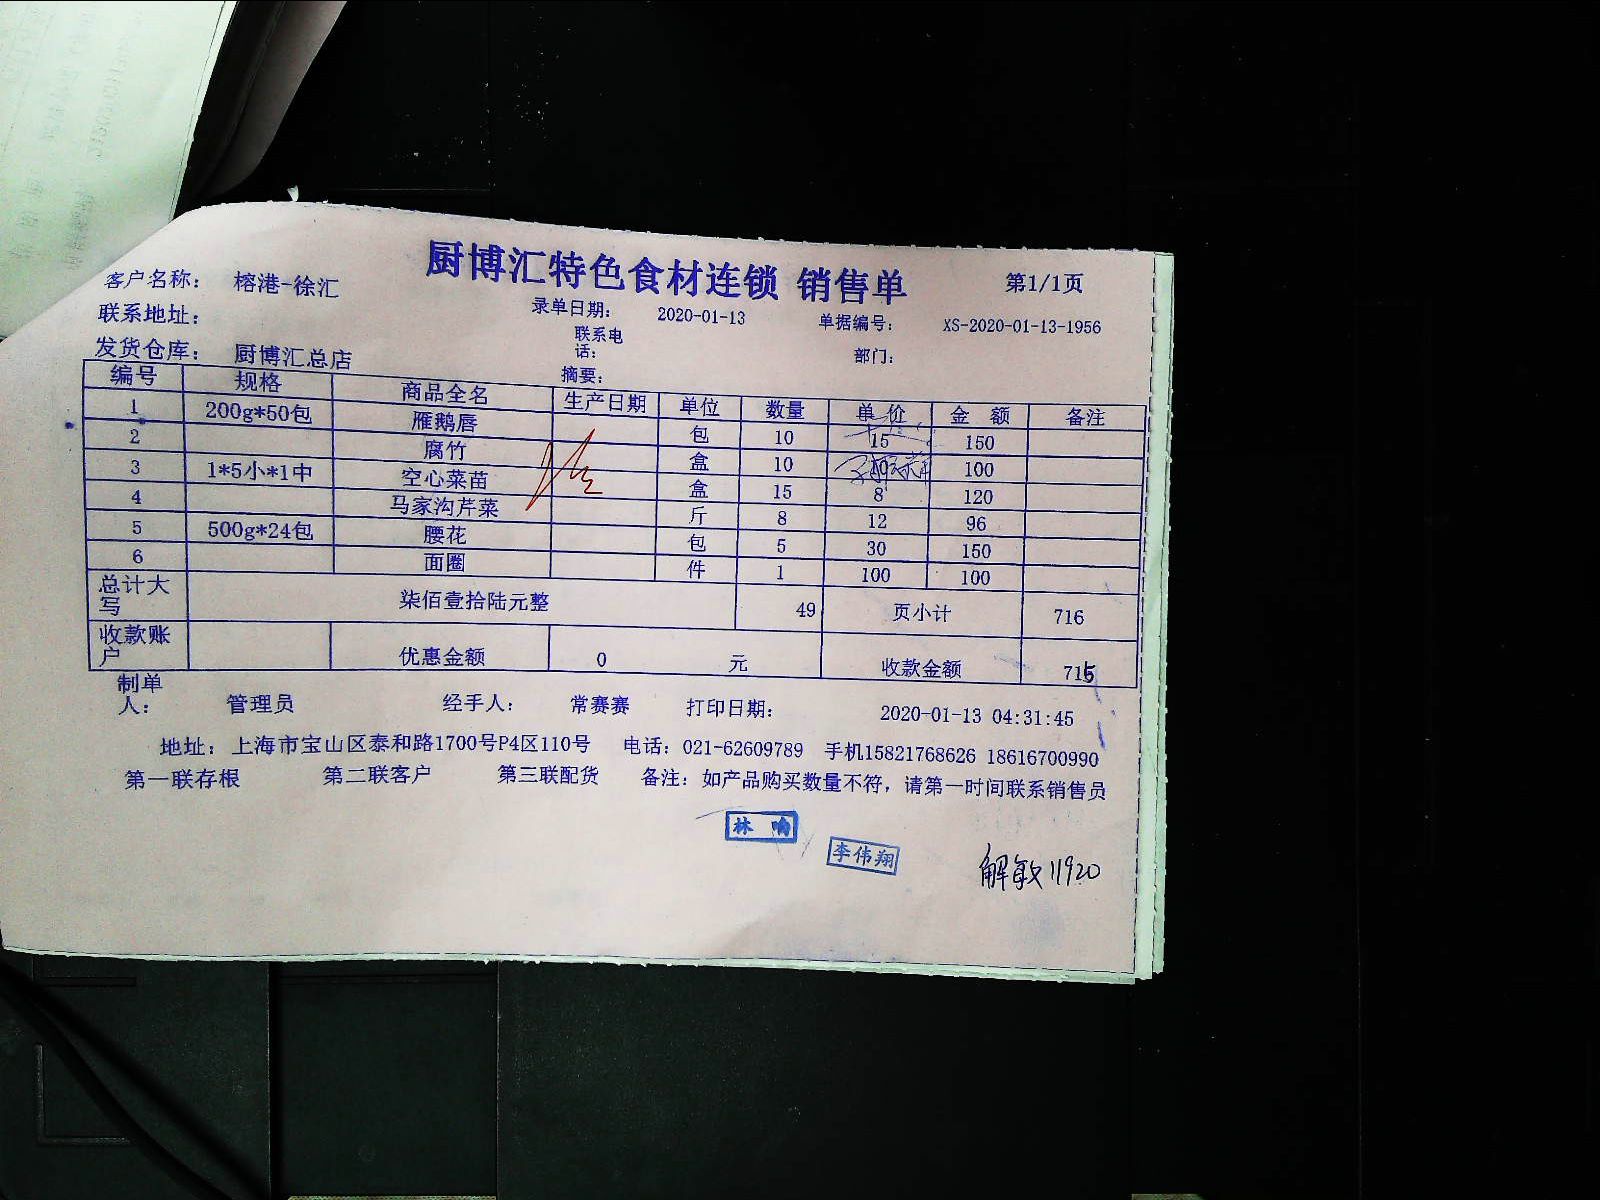 厨博汇特色食材连锁 销售单 第1/1页
客户名称： 榕港-徐汇
录单日期： 2020-01-13 单据编号： XS-2020-01-13-1956
联系地址： 联系电话： 部门：
发货仓库： 厨博汇总店 摘要：
编号 规格 商品全名 生产日期 单位 数量 单价 金额 备注
1 200g*50包 雁鹅唇 包 10 15 150
2 腐竹 盒 10 100
3 1*5小*1中 空心菜苗 盒 15 8 120
4 马家沟芹菜 斤 8 12 96
5 500g*24包 腰花 包 5 30 150
6 面圈 件 1 100 100
总计大写 柒佰壹拾陆元整 49 页小计 716
收款账户 优惠金额 0 元 收款金额 715
制单人： 管理员 经手人： 常赛赛 打印日期： 2020-01-13 04:31:45
地址：上海市宝山区泰和路1700号P4区110号 电话：021-62609789 手机15821768626 18616700990
第一联存根 第二联客户 第三联配货 备注：如产品购买数量不符，请第一时间联系销售员
林 响
李伟翔
解敏 11920